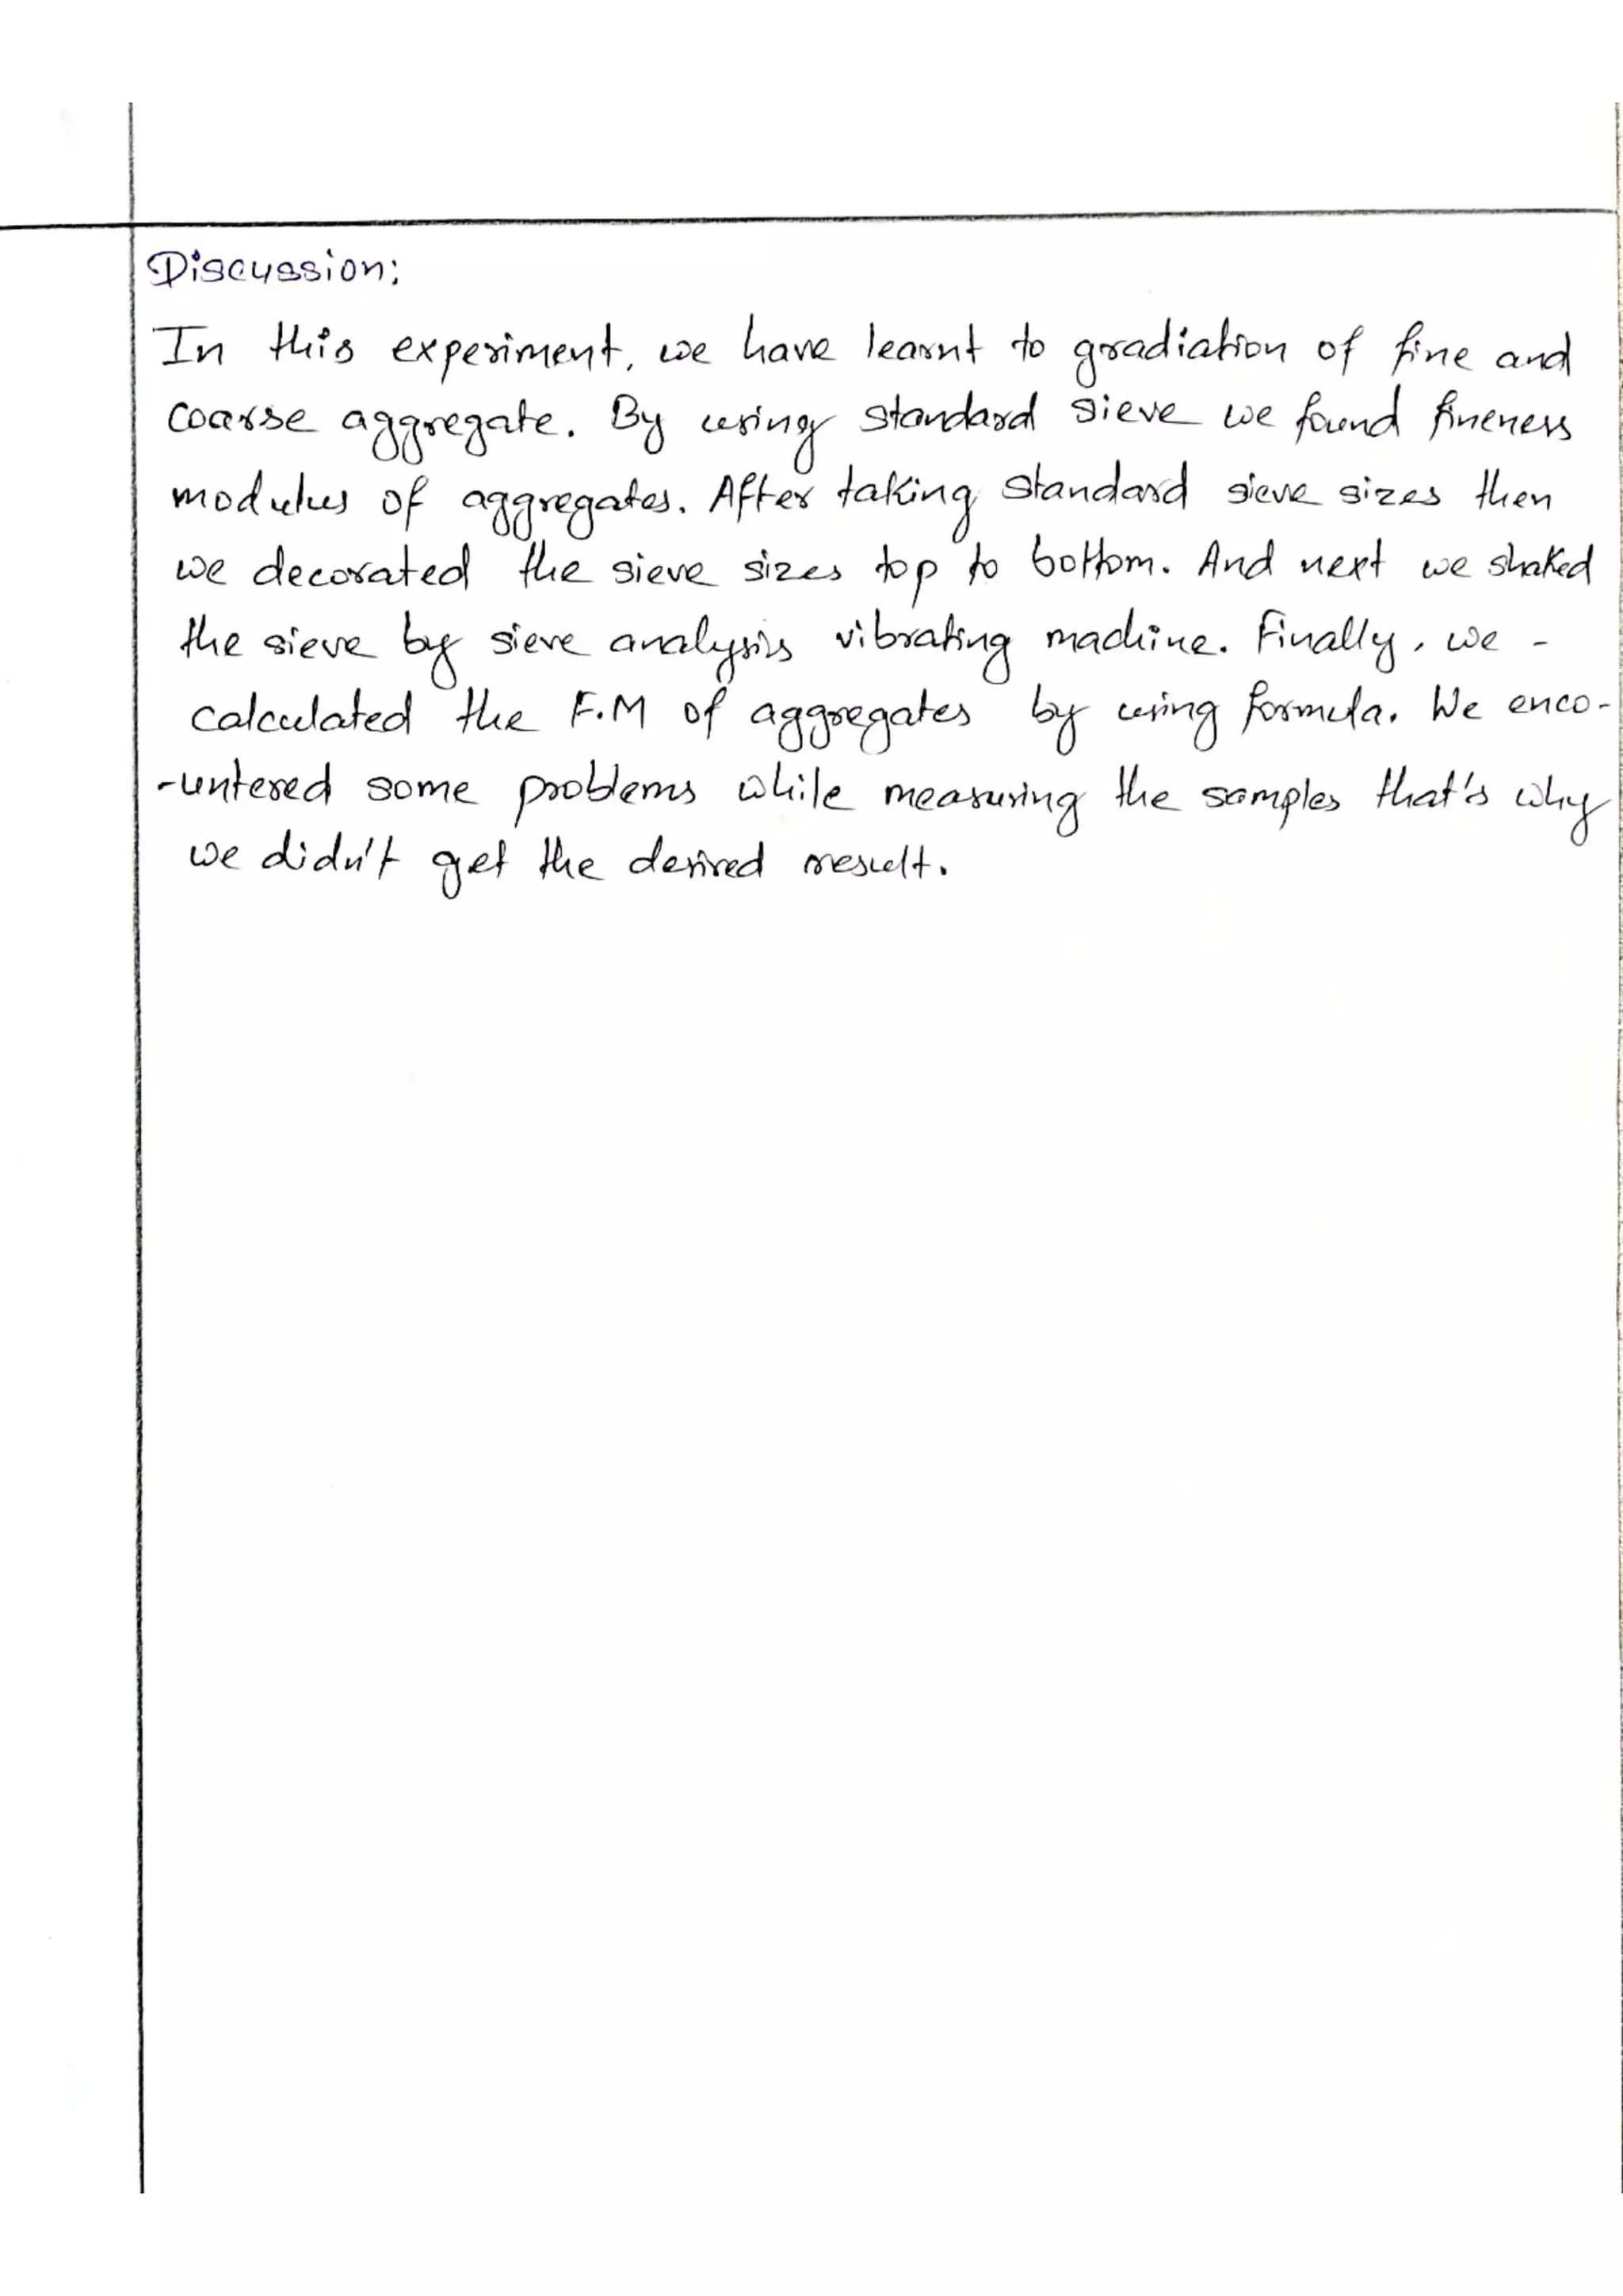 Discussion:
In this experiment, we have learnt to gradiation of fine and
coarse aggregate. By using standard sieve we found fineness
modulus of aggregates. After taking standard sieve sizes then
we decorated the sieve sizes top to bottom. And next we shaked
the sieve by sieve analysis vibrating machine. Finally, we -
calculated the F.M of aggregates by using formula. We enco-
-untered some problems while measuring the samples that's why
we didn't get the desired result.